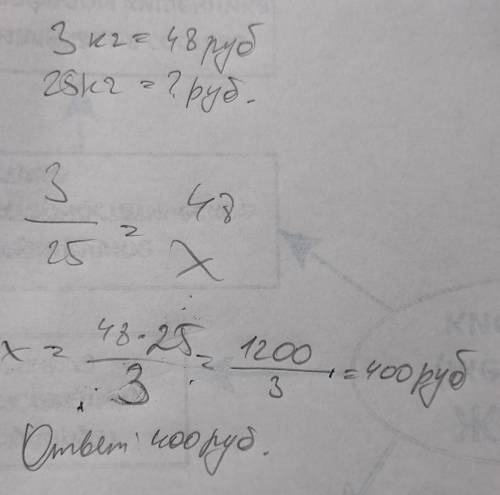 3 кг = 48 руб
25кг = ? руб.
3/25 = 48/x
x = 48·25/3 = 1200/3 = 400 руб
Ответ: 400 руб.